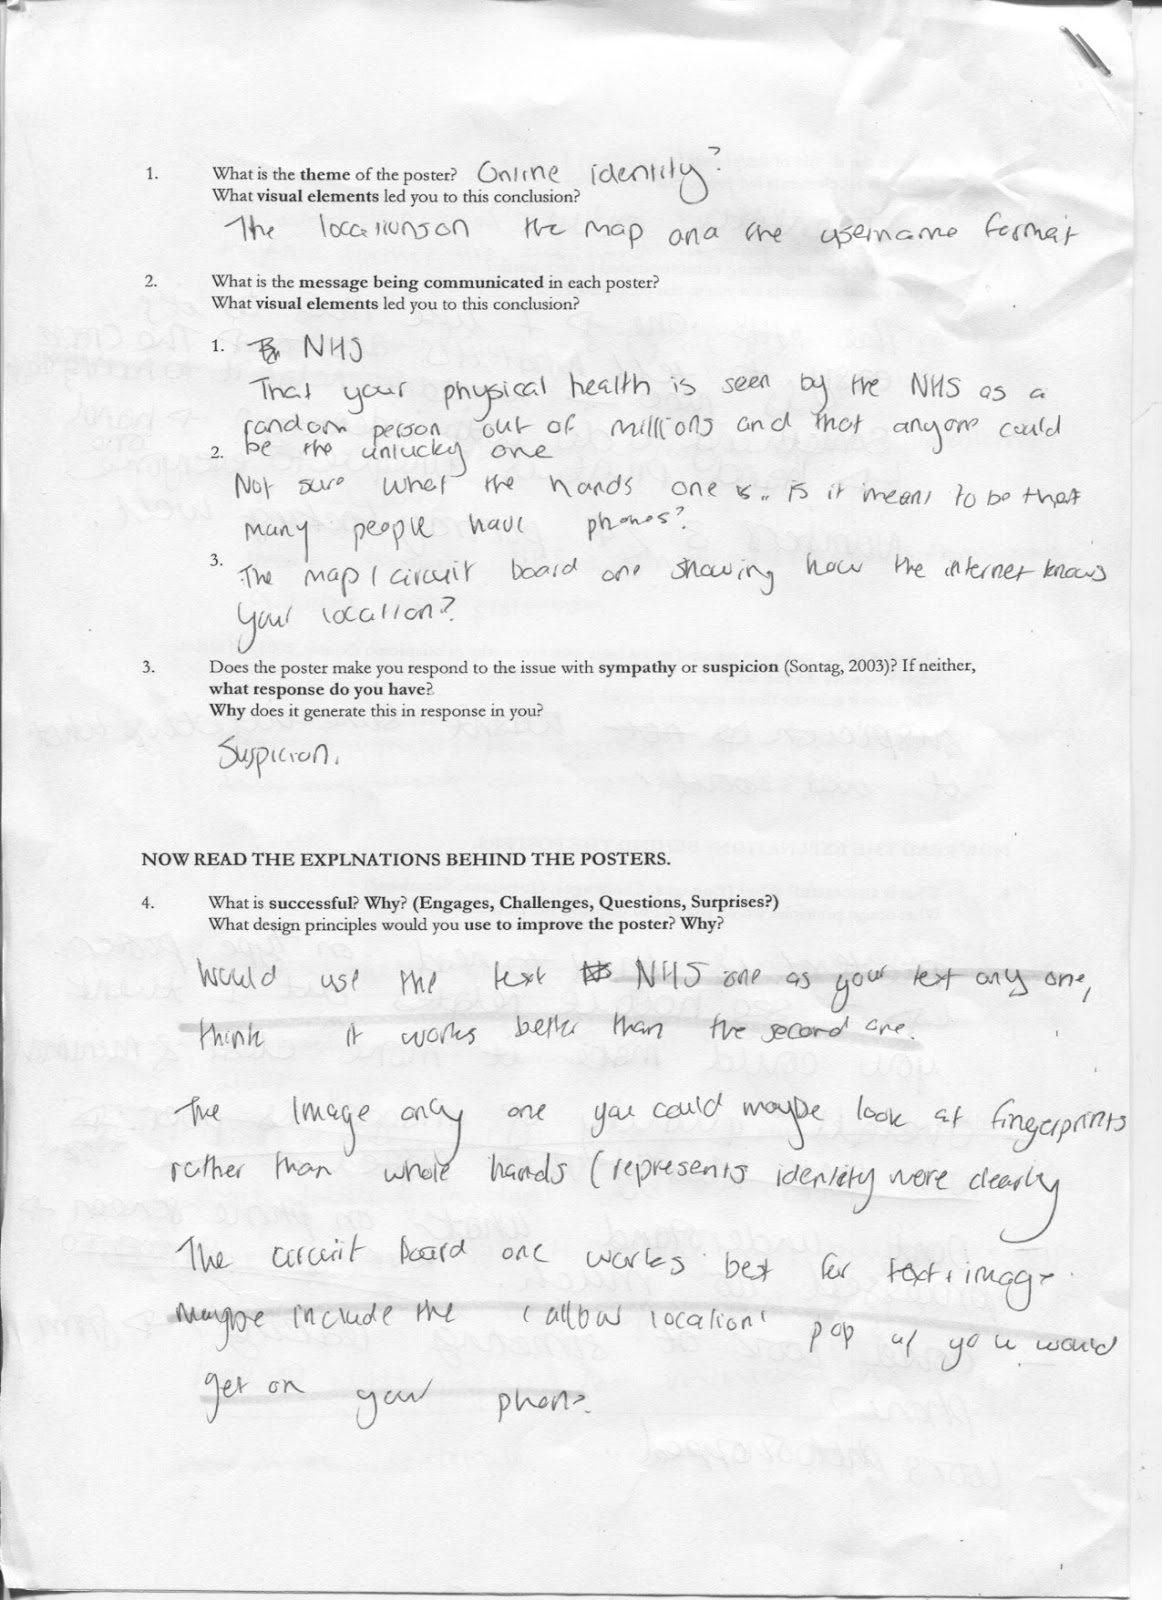 1. What is the theme of the poster? Online identity?
What visual elements led you to this conclusion?
The locations on the map and the username format
2. What is the message being communicated in each poster?
What visual elements led you to this conclusion?
1. NHS
That your physical health is seen by the NHS as a
random person out of millions and that anyone could
be the unlucky one
2.
Not sure what the hands one is.. is it meant to be that
many people have phones?
3. The map / circuit board one showing how the internet knows
your location?
3. Does the poster make you respond to the issue with sympathy or suspicion (Sontag, 2003)? If neither,
what response do you have?
Why does it generate this in response in you?
Suspicion.
NOW READ THE EXPLNATIONS BEHIND THE POSTERS.
4. What is successful? Why? (Engages, Challenges, Questions, Surprises?)
What design principles would you use to improve the poster? Why?
Would use the text NHS one as your text only one,
think it works better than the second one.
The image only one you could maybe look at fingerprints
rather than whole hands (represents identity more clearly
The circuit board one works best for text + image.
Maybe include the 'allow location' pop up you would
get on your phone.